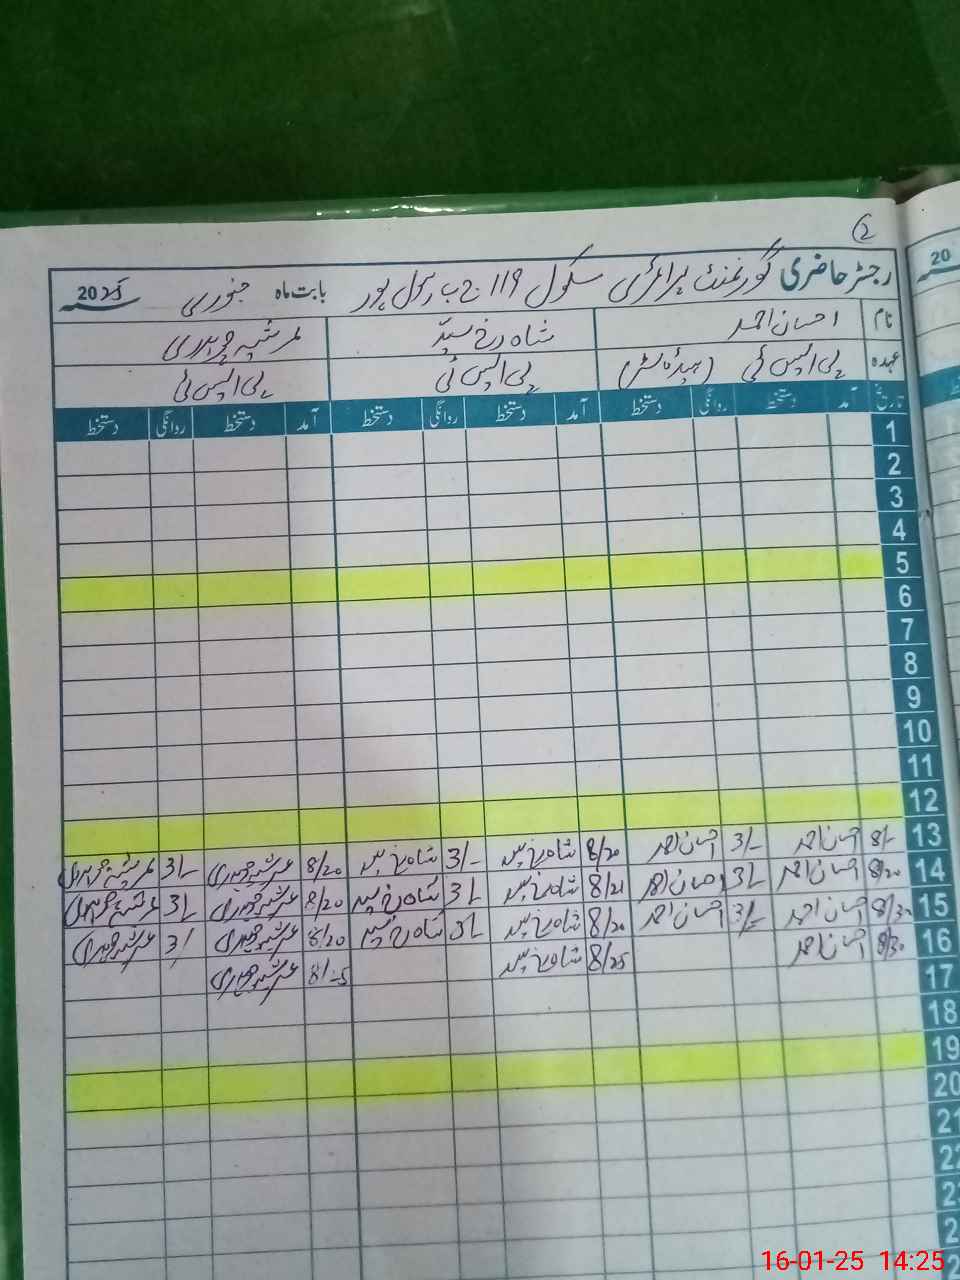 2
رجسٹر حاضری گورنمنٹ پرائمری سکول 119 ج ب رسول پور بابت ماہ جنوری 2025
20
نام احسان احمد شاہ رخ سید عرشیہ چوہدری
عہدہ پی ایس ٹی (ہیڈ ماسٹر) پی ایس ٹی پی ایس ٹی
تاریخ آمد دستخط روانگی دستخط آمد دستخط روانگی دستخط آمد دستخط روانگی دستخط
1
2
3
4
5
6
7
8
9
10
11
12
13 8/- احسان احمد 3/- احسان احمد 8/20 شاہ رخ سید 3/- شاہ رخ سید 8/20 عرشیہ چوہدری 3/- عرشیہ چوہدری
14 8/20 احسان احمد 3/- احسان احمد 8/21 شاہ رخ سید 3/- شاہ رخ سید 8/20 عرشیہ چوہدری 3/- عرشیہ چوہدری
15 8/30 احسان احمد 3/- احسان احمد 8/20 شاہ رخ سید 3/- شاہ رخ سید 8/20 عرشیہ چوہدری 3/- عرشیہ چوہدری
16 8/30 احسان احمد 8/25 شاہ رخ سید عرشیہ چوہدری
17
18
19
20
21
22
16-01-25 14:25